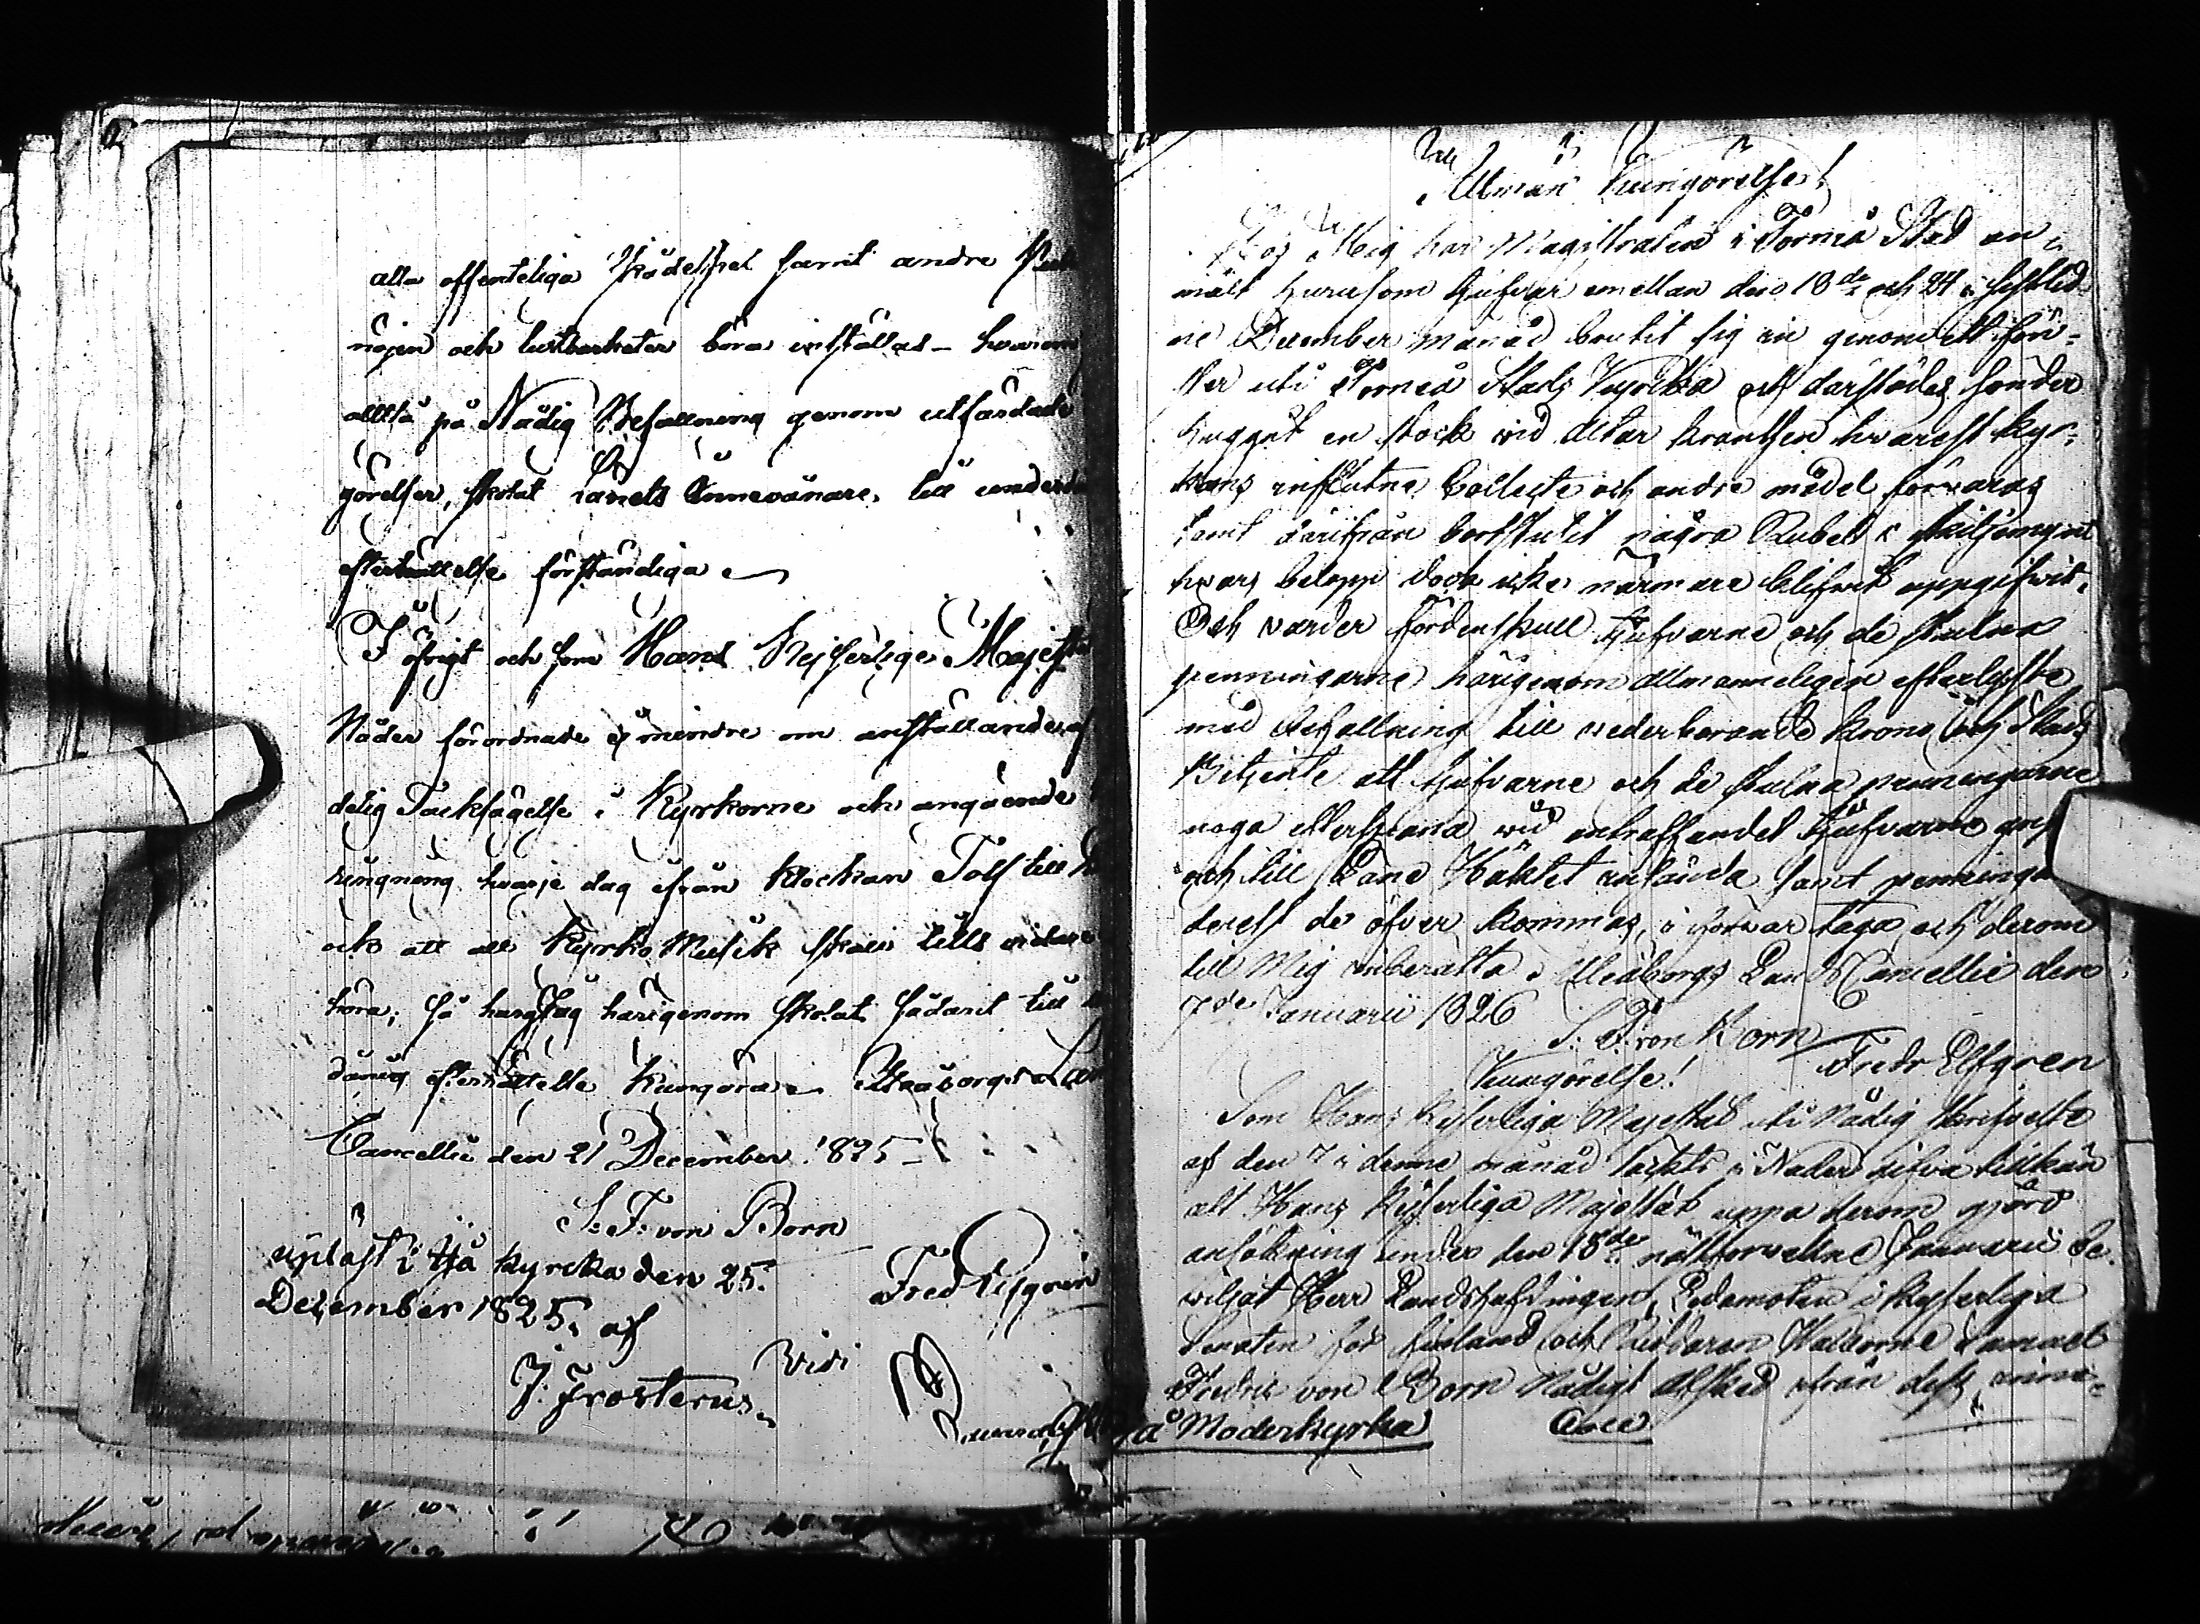 alla offenteliga skådespel samt andre
nöjen och lustbarheter böra inställas –
alltså på Nådig Befallning genom utfärdade
görelser, skolat Länets Innevånare, till
efterrättelse förständiga
I öfrigt och som Hans Kejserliga
Nåder förordnade ej mindre om anställande af
delig Tacksägelse i Kyrkorne och angående
ringning hvarje dag ifrån klockan Tolf till
ock att all Kyrko Musik skall tills vidare
höra; så har jag härigenom skolat sådant till
dånig efterrättelse kungöra. Uleåborgs
Cancellie den 21 December 1825
S: F: von Born
upläst i Ijå kyrcka den 25.
December 1825. af
J. Frosterus.
Vidi
Moderkyrka
Allmän Kungörelse!
Hos Mig har Magistraten i Torneå Stad an¬
mält hurusom tjufvar emellan den 18de och 24 i sistled¬
ne December månad brutit sig in genom ett fön¬
ster uti Torneå Stads Kyrcka och därstädes sönder
huggit en stock vid altar krantsen hvarest kyr¬
kans influtne Collecte och andre medel förvaras
samt därifrån bortstulit några Rubel i skiljemynt
hvars belopp dock icke närmare blifvit uppgifvit.
Och varder fördenskull tjufvarne och de stulna
penningarne härigenom allmänneligen efterlyste
med befallning till vederbörande Krono och Stads
Betjente att tjufvarne och de stulna penningarne
noga efterspana vid anträffandet tjufvarne
och till Läne Häktet införda samt
derest de öfver kommas, i förvar taga och derom
till Mig inberätta. Uleåborgs Landt Cancellie den
7de Januarii 1826
S: F: von Born
Fredr Elfgren
Kungörelse!
Som Hans Kejserliga Majestät uti Nådig Skrifvelse
af den 7 i denne månad täckts i Nåder gifva tillkän
att Hans Kejserliga Majestät uppå derom gjord
ansökning under den 18de nästförvekne Januarii be¬
viljat Herr Landshöfdingen, Ledamoten i Kejserliga
Senaten för Finland och Riddaren Samuel
Fredric von Born Nådigt afsked ifrån dess